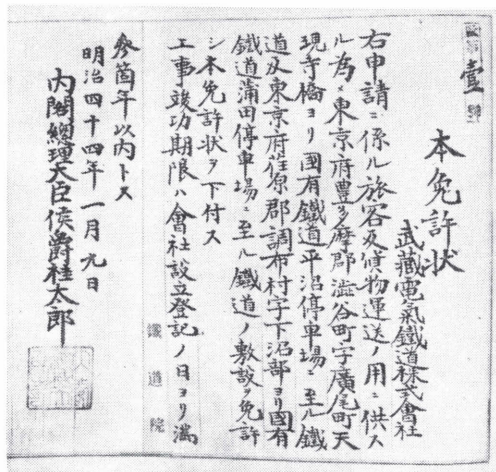 壹
本免許狀
武藏電氣鐵道株式會社
右申請ニ係ル旅客及貨物運送ノ用ニ供ス
ル為メ東京府豊多摩郡澁谷町字廣尾町天
現寺橋ヨリ國有鐵道平沼停車場ニ至ル鐵
道及東京府荏原郡調布村字下沼部ヨリ國有
鐵道蒲田停車場ニ至ル鐵道ノ敷設ヲ免許
シ本免許狀ヲ下付ス
工事竣功期限ハ會社設立登記ノ日ヨリ滿
鐵道院
參箇年以内トス
明治四十四年一月九日
内閣總理大臣侯爵桂太郎